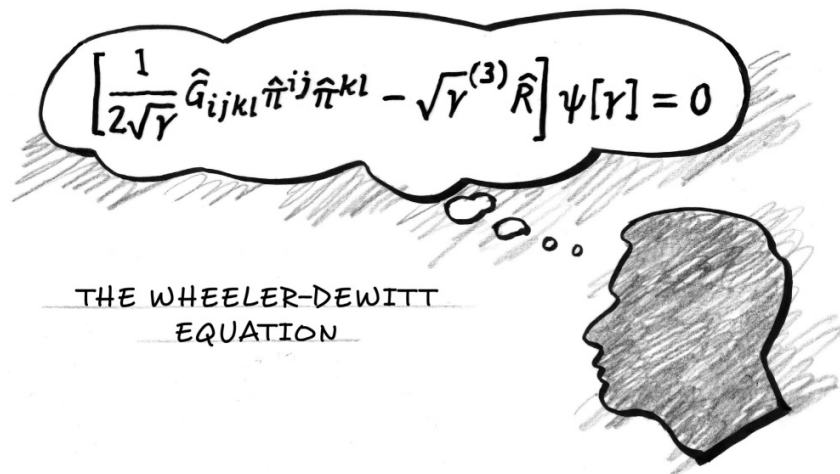 [1/2√γ Ĝ_ijkl π̂^ij π̂^kl − √γ ^(3)R̂] ψ[γ] = 0
THE WHEELER-DEWITT
EQUATION